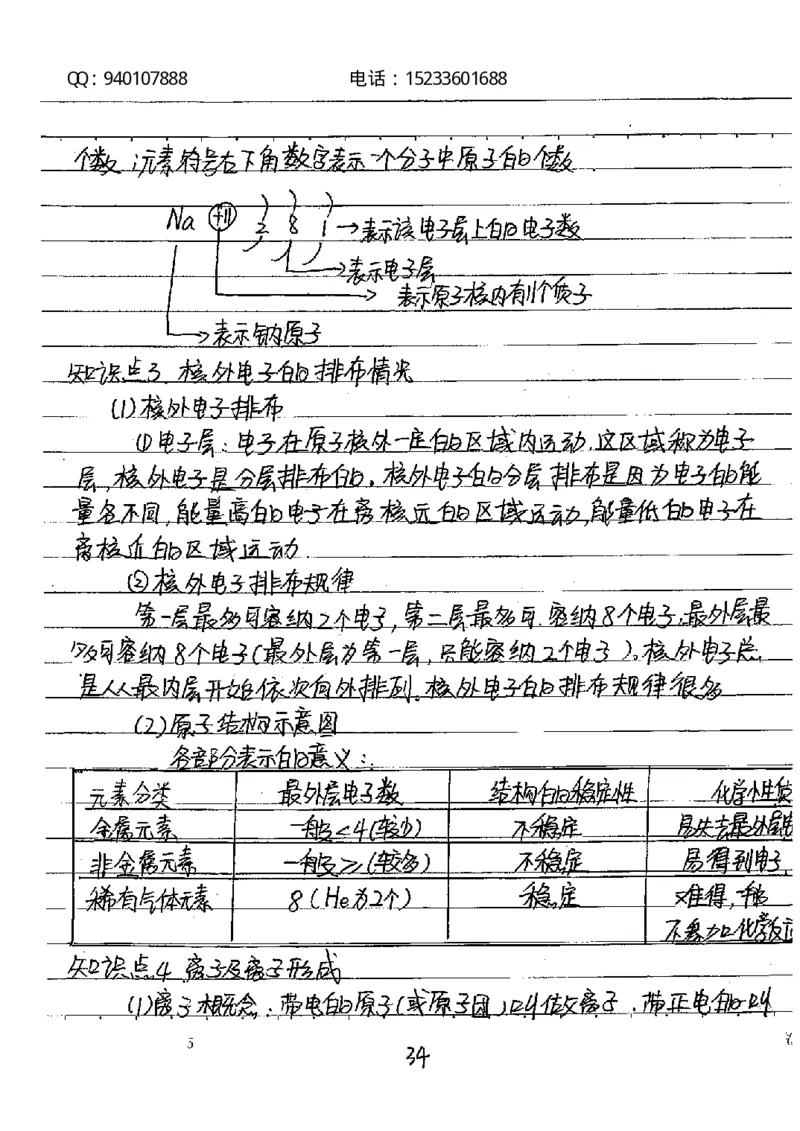 QQ：940107888 电话：15233601688
个数；元素符号右下角数字表示一个分子中原子的个数.
Na +11 2 8 1 →表示该电子层上的电子数
→表示电子层
→ 表示原子核内有11个质子
→表示钠原子
知识点3 核外电子的排布情况
(1)核外电子排布
①电子层：电子在原子核外一定的区域内运动,这区域称为电子
层,核外电子是分层排布的。核外电子的分层排布是因为电子的能
量各不同,能量高的电子在离核远的区域运动,能量低的电子在
离核近的区域运动.
②核外电子排布规律
第一层最多可容纳2个电子,第二层最多可容纳8个电子,最外层最
多可容纳8个电子(最外层为第一层,只能容纳2个电子)。核外电子总
是从最内层开始依次向外排列。核外电子的排布规律很多
(2)原子结构示意图
各部分表示的意义：
元素分类 最外层电子数 结构的稳定性 化学性质
金属元素 一般<4(较少) 不稳定 易失去最外层电
非金属元素 一般≥(较多) 不稳定 易得到电子,
稀有气体元素 8(He为2个) 稳定 难得,一般
不参加化学反应
知识点4 离子及离子形成
(1)离子概念：带电的原子(或原子团)叫做离子,带正电的叫
5
34